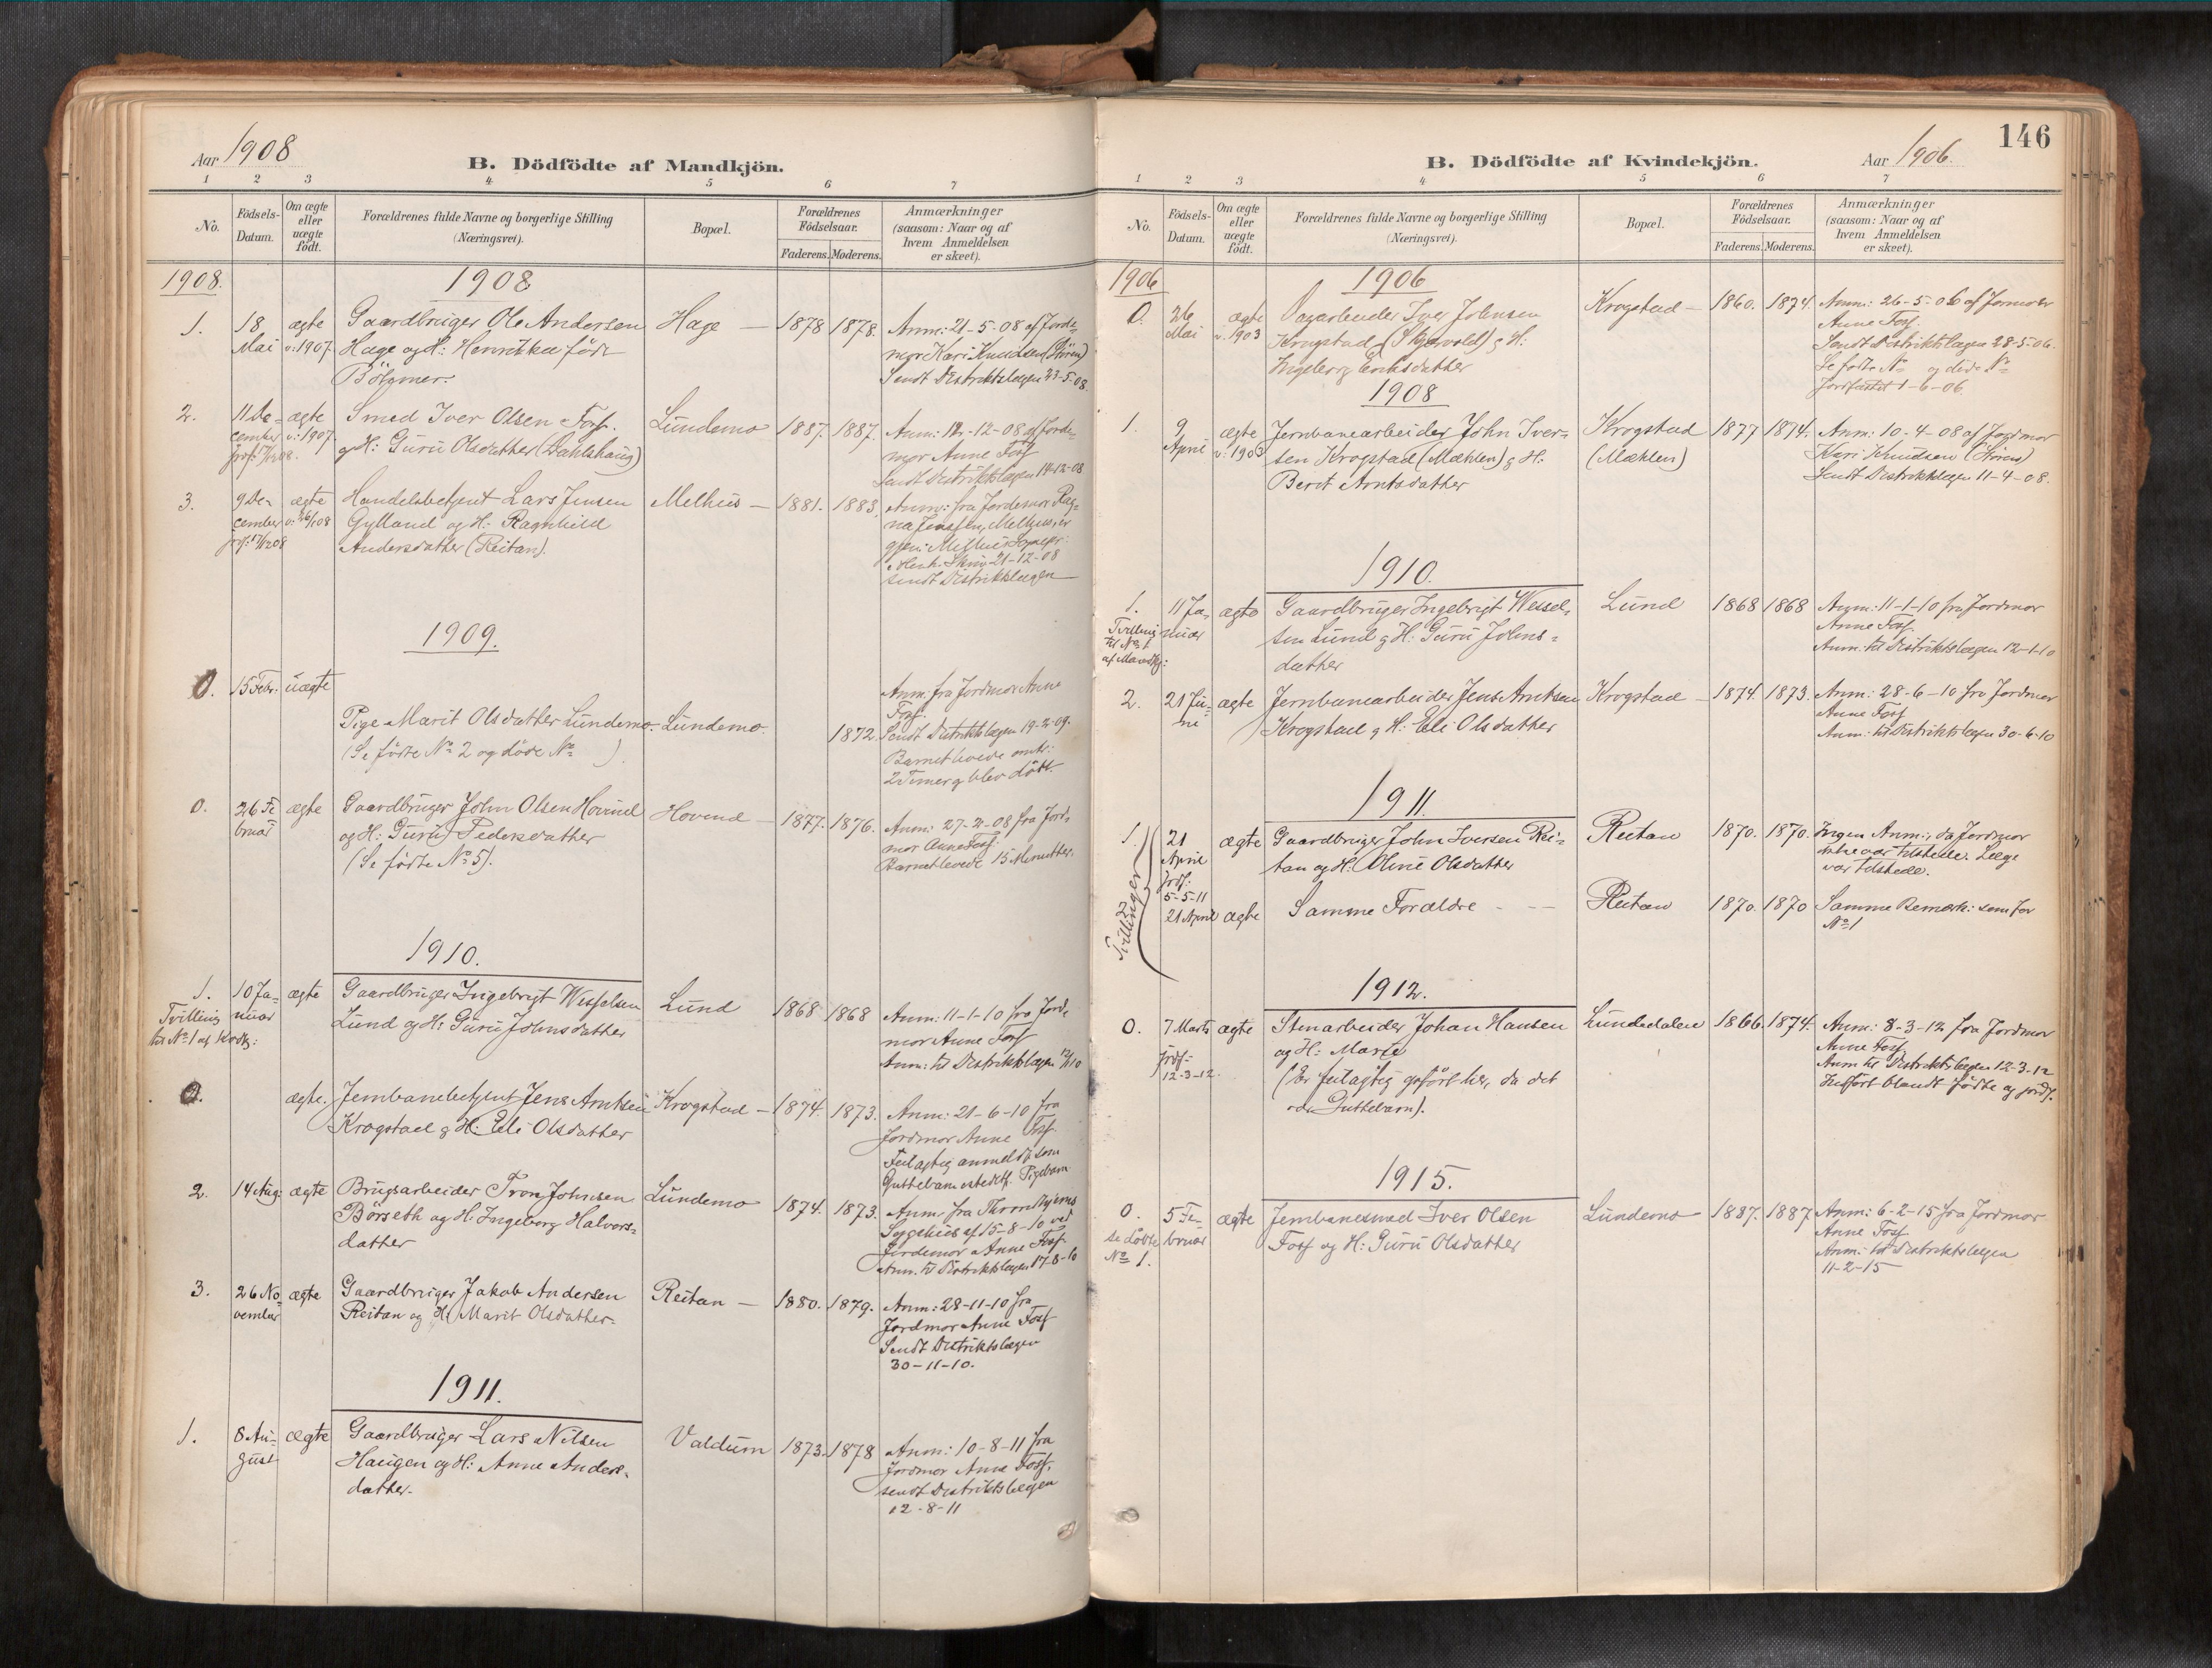 Aar 1908
B. Dödfödte af Mandkjön.
1 2 3 4 5 6 7
No.
Födsels-
Datum.
Om ægte
eller
uægte
födt.
Forældrenes fulde Navne og borgerlige Stilling
(Næringsvei).
Bopæl.
Forældrenes
Födselsaar.
Faderens. Moderens.
Anmærkninger
(saasom: Naar og af
hvem Anmeldelsen
er skeet).
1908. 1908
1. 18 ægte Gaardbruger Ole Andersen Hage — 1878 1878. Anm: 21-5-08 af Jorde-
Mai v: 1907. Hage og H: Henrikka født mor Kari Knudsen (Stören)
Sendt Distriktslægen 23-5-08.
2. 11 De- ægte Smed Iver Olsen Foss. Lundemo 1887. 1887. Anm: 12-12-08 af Jorde-
cember v: 1907. og H: Guru Olsdatter (Dahlshaug) mor Anne Foss
Sendt Distriktslægen 14-12-08
3. 9 De- ægte Handelsbetjent Lars Jensen Melhus — 1881. 1883. Anm: fra Jordemor Rag-
cember Gylland og H: Ragnhild na Jenssen, Melhus, er
Andersdatter (Reitan).
21-12-08
sendt Distriktslægen
1909.
0. 15 Febr. uægte Anm: fra Jordmor Anne
Foss.
Pige Marit Olsdatter Lundemo. Lundemo. 1872. Sendt Distriktslægen 19-2-09.
(Se fødte No 2 og døde No ). Barnet levede omtr:
2 Timer og blev døbt.
0. 26 Fe ægte Gaardbruger John Olsen Hovind Hovind — 1877. 1876. Anm: 27-2-08 fra Jord-
bruar og H: Guru Pedersdatter mor Anne Foss.
(Se fødte No 5). Barnet levede 15 Minutter.
1910.
1. 10 Ja- ægte Gaardbruger Ingebrigt Wesselsen Lund 1868 1868 Anm: 11-1-10 fra Jord-
Tvilling nuar Lund og H: Guru Johnsdatter mor Anne Foss
til No 1 af Kvdkj: Anm: til Distriktslægen 12/1 10
0. ægte. Jernbanebetjent Jens Arntsen Krogstad — 1874. 1873. Anm: 21-6-10 fra
Krogstad og H: Eli Olsdatter Jordmor Anne Foss.
Feilagtig anmeldt som
Guttebarn istedetf. Pigebarn
2. 14 Aug: ægte Brugsarbeider Tron Johnsen Lundemo 1874. 1873. Anm: fra Throndhjems
Börseth og H: Ingeborg Halvors- Sygehus af 15-8-10 ved
datter Jordemor Anne Foss
Anm. til Distriktslægen 17-8-10
3. 26 No ægte Gaardbruger Jakob Andersen Reitan — 1880. 1879. Anm: 28-11-10 fra
vember Reitan og H: Marit Olsdatter. Jordmor Anne Foss
Sendt Distriktslægen
30-11-10.
1911.
1. 8 Au- ægte Gaardbruger Lars Nilsen Valdum 1873. 1878 Anm: 10-8-11 fra
gust Haugen og H: Anne Anders- Jordmor Anne Foss.
datter. sendt Distriktslægen
12-8-11
146
B. Dödfödte af Kvindekjön.
Aar 1906.
1 2 3 4 5 6 7
No.
Födsels-
Datum.
Om ægte
eller
uægte
födt.
Forældrenes fulde Navne og borgerlige Stilling
(Næringsvei).
Bopæl.
Forældrenes
Födselsaar.
Faderens. Moderens.
Anmærkninger
(saasom: Naar og af
hvem Anmeldelsen
er skeet).
1906 1906
0. 26 ægte Dagarbeider Iver Johnsen Krogstad — 1860. 1874. Anm: 26-5-06 af Jormoder
Mai v. 1903 Krogstad og H: Anne Foss.
Ingeborg Eriksdatter Sendt Distriktslægen 28-5-06.
Se fødte No og døde No
1-6-06.
1908
1. 9 ægte Jernbanearbeider John Iver- Krogstad 1877 1874. Anm: 10-4-08 af Jordmor
April v: 1903 sen Krogstad (Mæhlen) og H: (Mæhlen) Kari Knudsen (Stören)
Berit Arntsdatter Sendt Distriktslægen 11-4-08.
1910.
1. 11 Ja- ægte Gaardbruger Ingebrigt Wessel- Lund 1868 1868 Anm: 11-1-10 fra Jordmor
Tvilling nuar sen Lund og H: Guru Johns- Anne Foss
til No 1 datter Anm. til Distriktslægen 12-1-10
af Mandkj:
2. 21 Ju- ægte Jernbanearbeider Jens Arntsen Krogstad — 1874. 1873. Anm: 28-6-10 fra Jordmor
ni Krogstad og H: Eli Olsdatter Anne Foss
Anm: til Distriktslægen 30-6-10
1911.
Tvillinger
1. 21 ægte Gaardbruger John Iversen Rei- Reitan 1870. 1870. Ingen Anm:, da Jordmor
April tan og H: Oline Olsdatter ikke var tilstede. Læge
jrdf: var tilstede.
5-5-11
2 21 April ægte Samme Forældre - — — Reitan 1870. 1870 Samme Bemærk: som for
No 1
1912.
0. 7 Marts ægte Stenarbeider Johan Hansen Lundedalen 1866. 1874. Anm: 8-3-12 fra Jordmor
jrdf:- og H: Marte Anne Foss
12-3-12. (Er feilagtig opført her, da det Anm til Distriktslægen 12-3-12
Guttebarn). Indført blandt fødte og jordf.
1915.
0. 5 Fe- ægte Jernbanesmed Iver Olsen Lundemo — 1887. 1887 Anm: 6-2-15 fra Jordmor
se døbte bruar Foss og H: Guru Olsdatter Anne Foss
No 1. Anm: til Distriktslægen
11-2-15